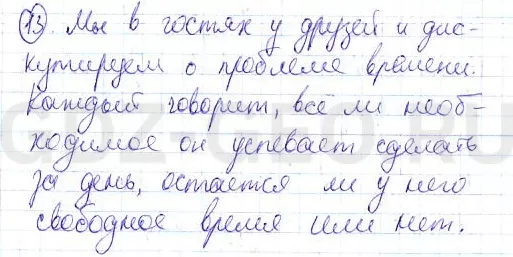 13. Мы в гостях у друзей и дис-
кутируем о проблеме времени.
Каждый говорит, всё ли необ-
ходимое он успевает сделать
за день, остается ли у него
свободное время или нет.